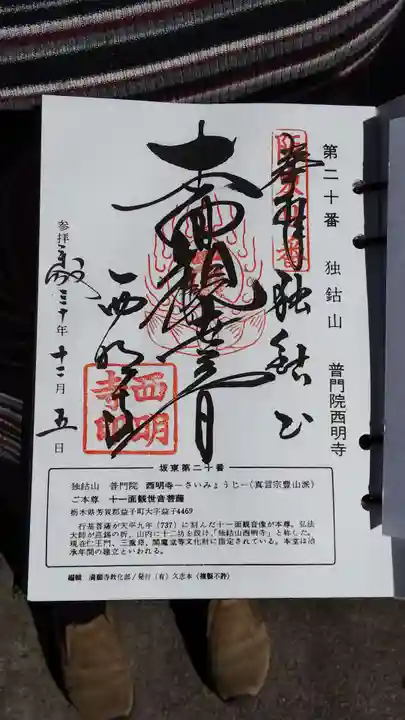 第二十番　独鈷山　普門院西明寺
奉拝
独鈷山
本尊
西明寺
参拝
三十年十二月五日
西明
寺印
坂東第二十番
独鈷山　普門院　西明寺－さいみょうじ－(真言宗豊山派)
ご本尊　十一面観世音菩薩
栃木県芳賀郡益子町大字益子4469
行基菩薩が天平九年(737)に刻んだ十一面観音像が本尊。弘法
大師が巡錫の折、山内に十二坊を設け、「独鈷山西明寺」と称した。
現在仁王門、三重塔、閻魔堂等文化財に指定されている。本堂は治
承年間の建立といわれる。
編輯　満願寺教化部／発行（有）久志本（複製不許）